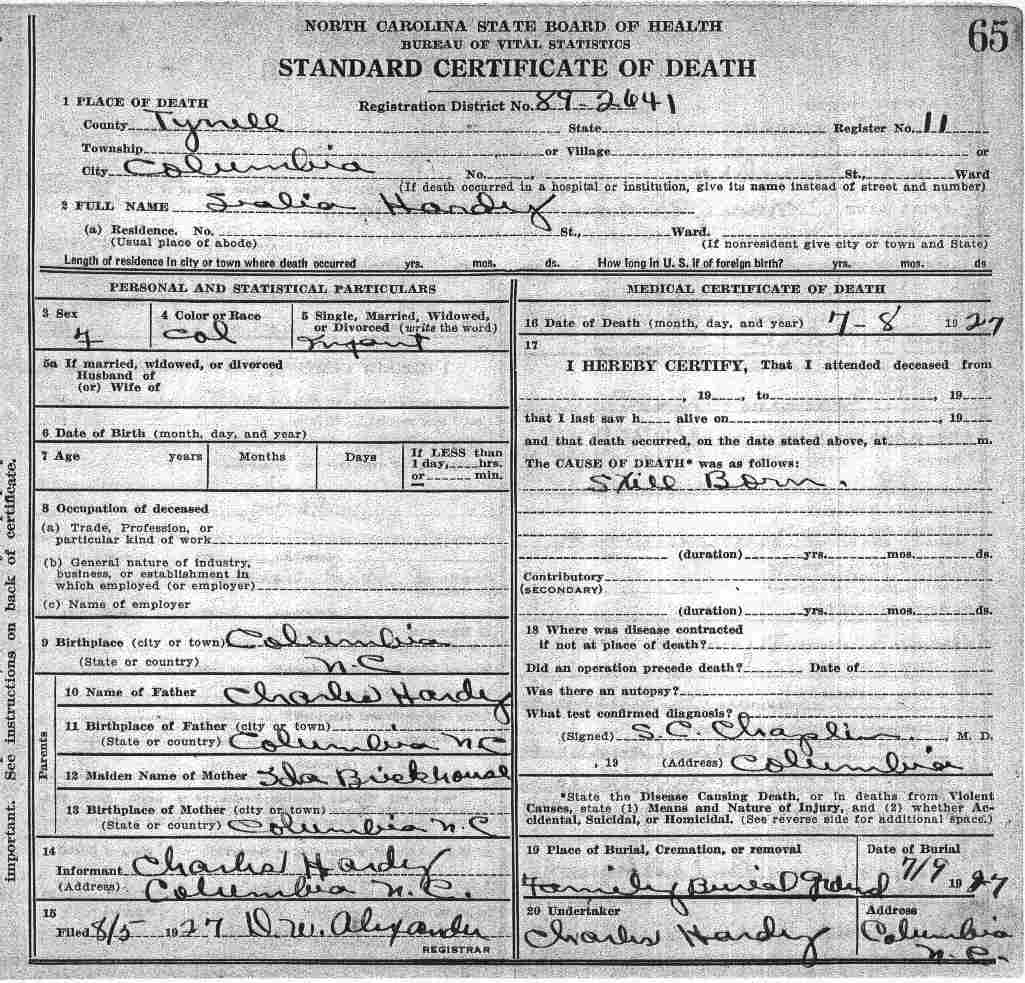 NORTH CAROLINA STATE BOARD OF HEALTH
BUREAU OF VITAL STATISTICS
65
STANDARD CERTIFICATE OF DEATH
1 PLACE OF DEATH Registration District No. 89-2641
County Tyrrell State Register No. 11
Township or Village or
City Columbia No. , St., Ward
(If death occurred in a hospital or institution, give its name instead of street and number)
2 FULL NAME Hardy
(a) Residence. No. St., Ward.
(Usual place of abode) (If nonresident give city or town and State)
Length of residence in city or town where death occurred yrs. mos. ds. How long in U. S. if of foreign birth? yrs. mos. ds
PERSONAL AND STATISTICAL PARTICULARS
3 Sex 4 Color or Race 5 Single, Married, Widowed,
or Divorced (write the word)
f col Infant
5a If married, widowed, or divorced
Husband of
(or) Wife of
6 Date of Birth (month, day, and year)
7 Age years Months Days If LESS than
1 day, hrs.
or min.
8 Occupation of deceased
(a) Trade, Profession, or
particular kind of work
(b) General nature of industry,
business, or establishment in
which employed (or employer)
(c) Name of employer
9 Birthplace (city or town) Columbia
(State or country) N.C
Parents
10 Name of Father Charles Hardy
11 Birthplace of Father (city or town)
(State or country) Columbia N C
12 Maiden Name of Mother Ida Brickhouse
13 Birthplace of Mother (city or town)
(State or country) Columbia N.C
14
Informant Charles Hardy
(Address) Columbia N.C.
15
Filed 8/5 1927 D.W. Alexander
REGISTRAR
MEDICAL CERTIFICATE OF DEATH
16 Date of Death (month, day, and year) 7-8 1927
17
I HEREBY CERTIFY, That I attended deceased from
, 19 , to , 19
that I last saw h alive on , 19
and that death occurred, on the date stated above, at m.
The CAUSE OF DEATH* was as follows:
Still Born.
(duration) yrs. mos. ds.
Contributory
(SECONDARY)
(duration) yrs. mos. ds.
18 Where was disease contracted
if not at place of death?
Did an operation precede death? Date of
Was there an autopsy?
What test confirmed diagnosis?
(Signed) S.C. Chaplin. , M. D.
, 19 (Address) Columbia
*State the Disease Causing Death, or in deaths from Violent
Causes, state (1) Means and Nature of Injury, and (2) whether Ac-
cidental, Suicidal, or Homicidal. (See reverse side for additional space.)
19 Place of Burial, Cremation, or removal Date of Burial
Family Burial Ground 7/9 1927
20 Undertaker Address
Charles Hardy Columbia
N.C.
important. See instructions on back of certificate.